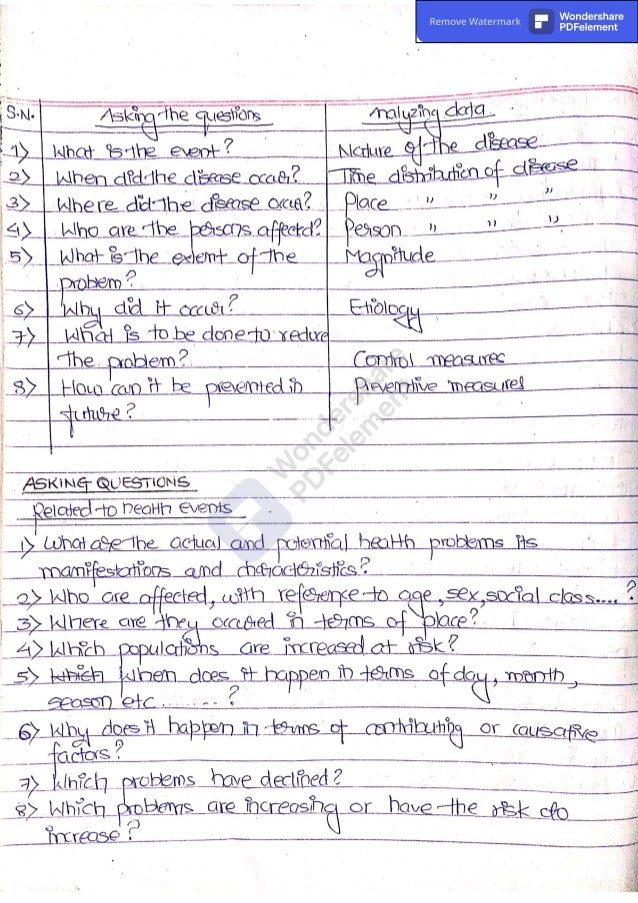 Remove Watermark Wondershare PDFelement
S.N. Asking the questions Analyzing data
1) What is the event? Nature of the disease
2) When did the disease occur? Time distribution of disease
3) Where did the disease occur? Place " " "
4) Who are the persons affected? Person " " "
5) What is the extent of the Magnitude
problem?
6) Why did it occur? Etiology
7) What is to be done to reduce
the problem? Control measures
8) How can it be prevented in Preventive measures
future?
Wondershare
PDFelement
ASKING QUESTIONS
Related to health events
1) What are the actual and potential health problems its
manifestations and characteristics?
2) Who are affected, with reference to age, sex, social class....?
3) Where are they occured in terms of place?
4) Which populations are increased at risk?
5) Which When does it happen in terms of day, month,
season etc.........?
6) Why does it happen in terms of contributing or causative
factors?
7) Which problems have declined?
8) Which problems are increasing or have the risk to
increase?